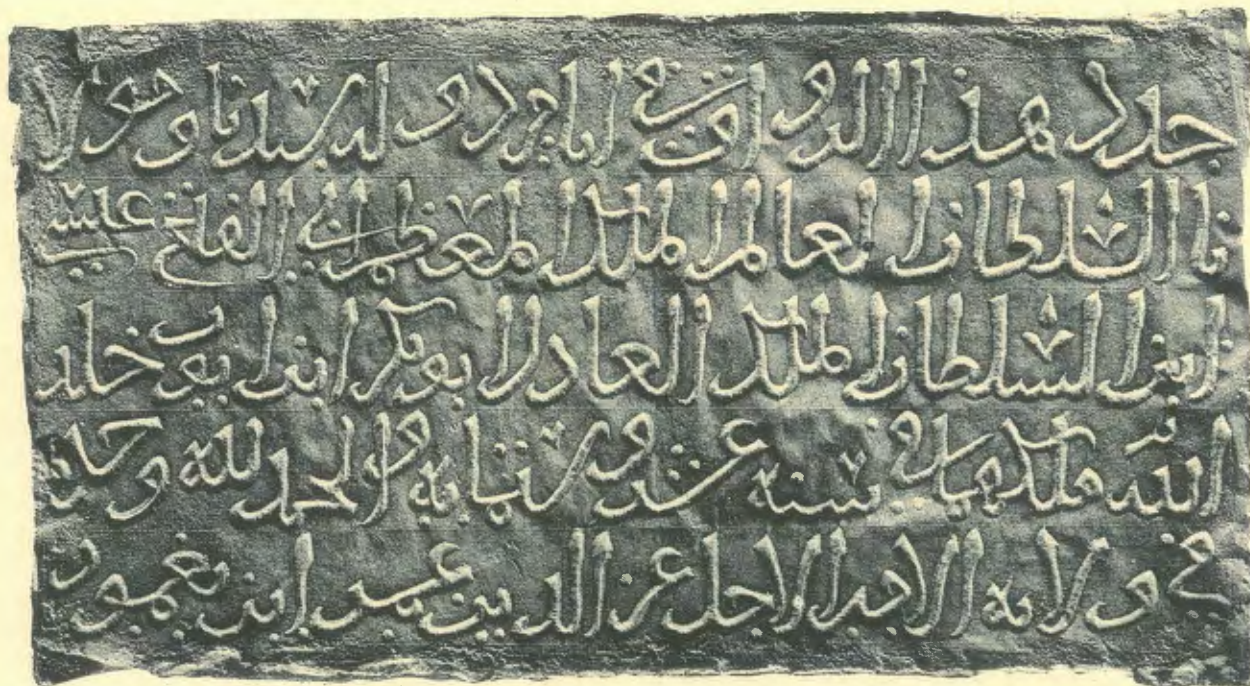 جدد هذا الرواق في ايام دولة سيدنا ومولا
نا السلطان العالم الملك المعظم ابي الفتح عيسى
ابن السلطان الملك العادل ابو بكر ابن ايوب خلد
الله ملكهما في سنة عشر وستمايه والحمد لله وحده
في ولاية الامير الاجل عز الدين عمر ابن يغمور